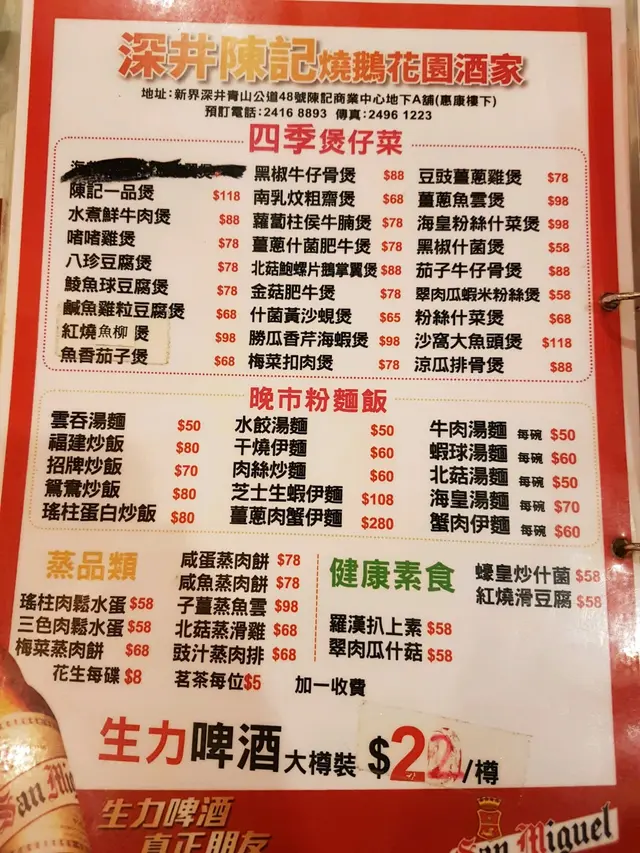 深井陳記燒鵝花園酒家
地址：新界深井青山公道48號陳記商業中心地下A舖(惠康樓下)
預訂電話：2416 8893 傳真：2496 1223
四季煲仔菜
陳記一品煲 $118
水煮鮮牛肉煲 $88
啫啫雞煲 $78
八珍豆腐煲 $78
鯪魚球豆腐煲 $78
鹹魚雞粒豆腐煲 $68
紅燒魚柳煲 $98
魚香茄子煲 $68
黑椒牛仔骨煲 $88
南乳炆粗齋煲 $68
蘿蔔柱侯牛腩煲 $78
薑蔥什菌肥牛煲 $78
北菇鮑螺片鵝掌翼煲 $88
金菇肥牛煲 $78
什菌黃沙蜆煲 $65
勝瓜香芹海蝦煲 $98
梅菜扣肉煲 $78
豆豉薑蔥雞煲 $78
薑蔥魚雲煲 $98
海皇粉絲什菜煲 $98
黑椒什菌煲 $58
茄子牛仔骨煲 $88
翠肉瓜蝦米粉絲煲 $58
粉絲什菜煲 $68
沙窩大魚頭煲 $118
涼瓜排骨煲 $88
晚市粉麵飯
雲吞湯麵 $50
福建炒飯 $80
招牌炒飯 $70
鴛鴦炒飯 $80
瑤柱蛋白炒飯 $80
水餃湯麵 $50
干燒伊麵 $60
肉絲炒麵 $60
芝士生蝦伊麵 $108
薑蔥肉蟹伊麵 $280
牛肉湯麵 每碗 $50
蝦球湯麵 每碗 $60
北菇湯麵 每碗 $50
海皇湯麵 每碗 $70
蟹肉伊麵 每碗 $60
蒸品類
瑤柱肉鬆水蛋 $58
三色肉鬆水蛋 $58
梅菜蒸肉餅 $68
咸蛋蒸肉餅 $78
咸魚蒸肉餅 $78
子薑蒸魚雲 $98
北菇蒸滑雞 $68
豉汁蒸肉排 $68
健康素食
羅漢扒上素 $58
翠肉瓜什菇 $58
蠔皇炒什菌 $58
紅燒滑豆腐 $58
花生每碟 $8 茗茶每位 $5 加一收費
生力啤酒 大樽裝 $22/樽
San Mig
生力啤酒
真正朋友
San Miguel